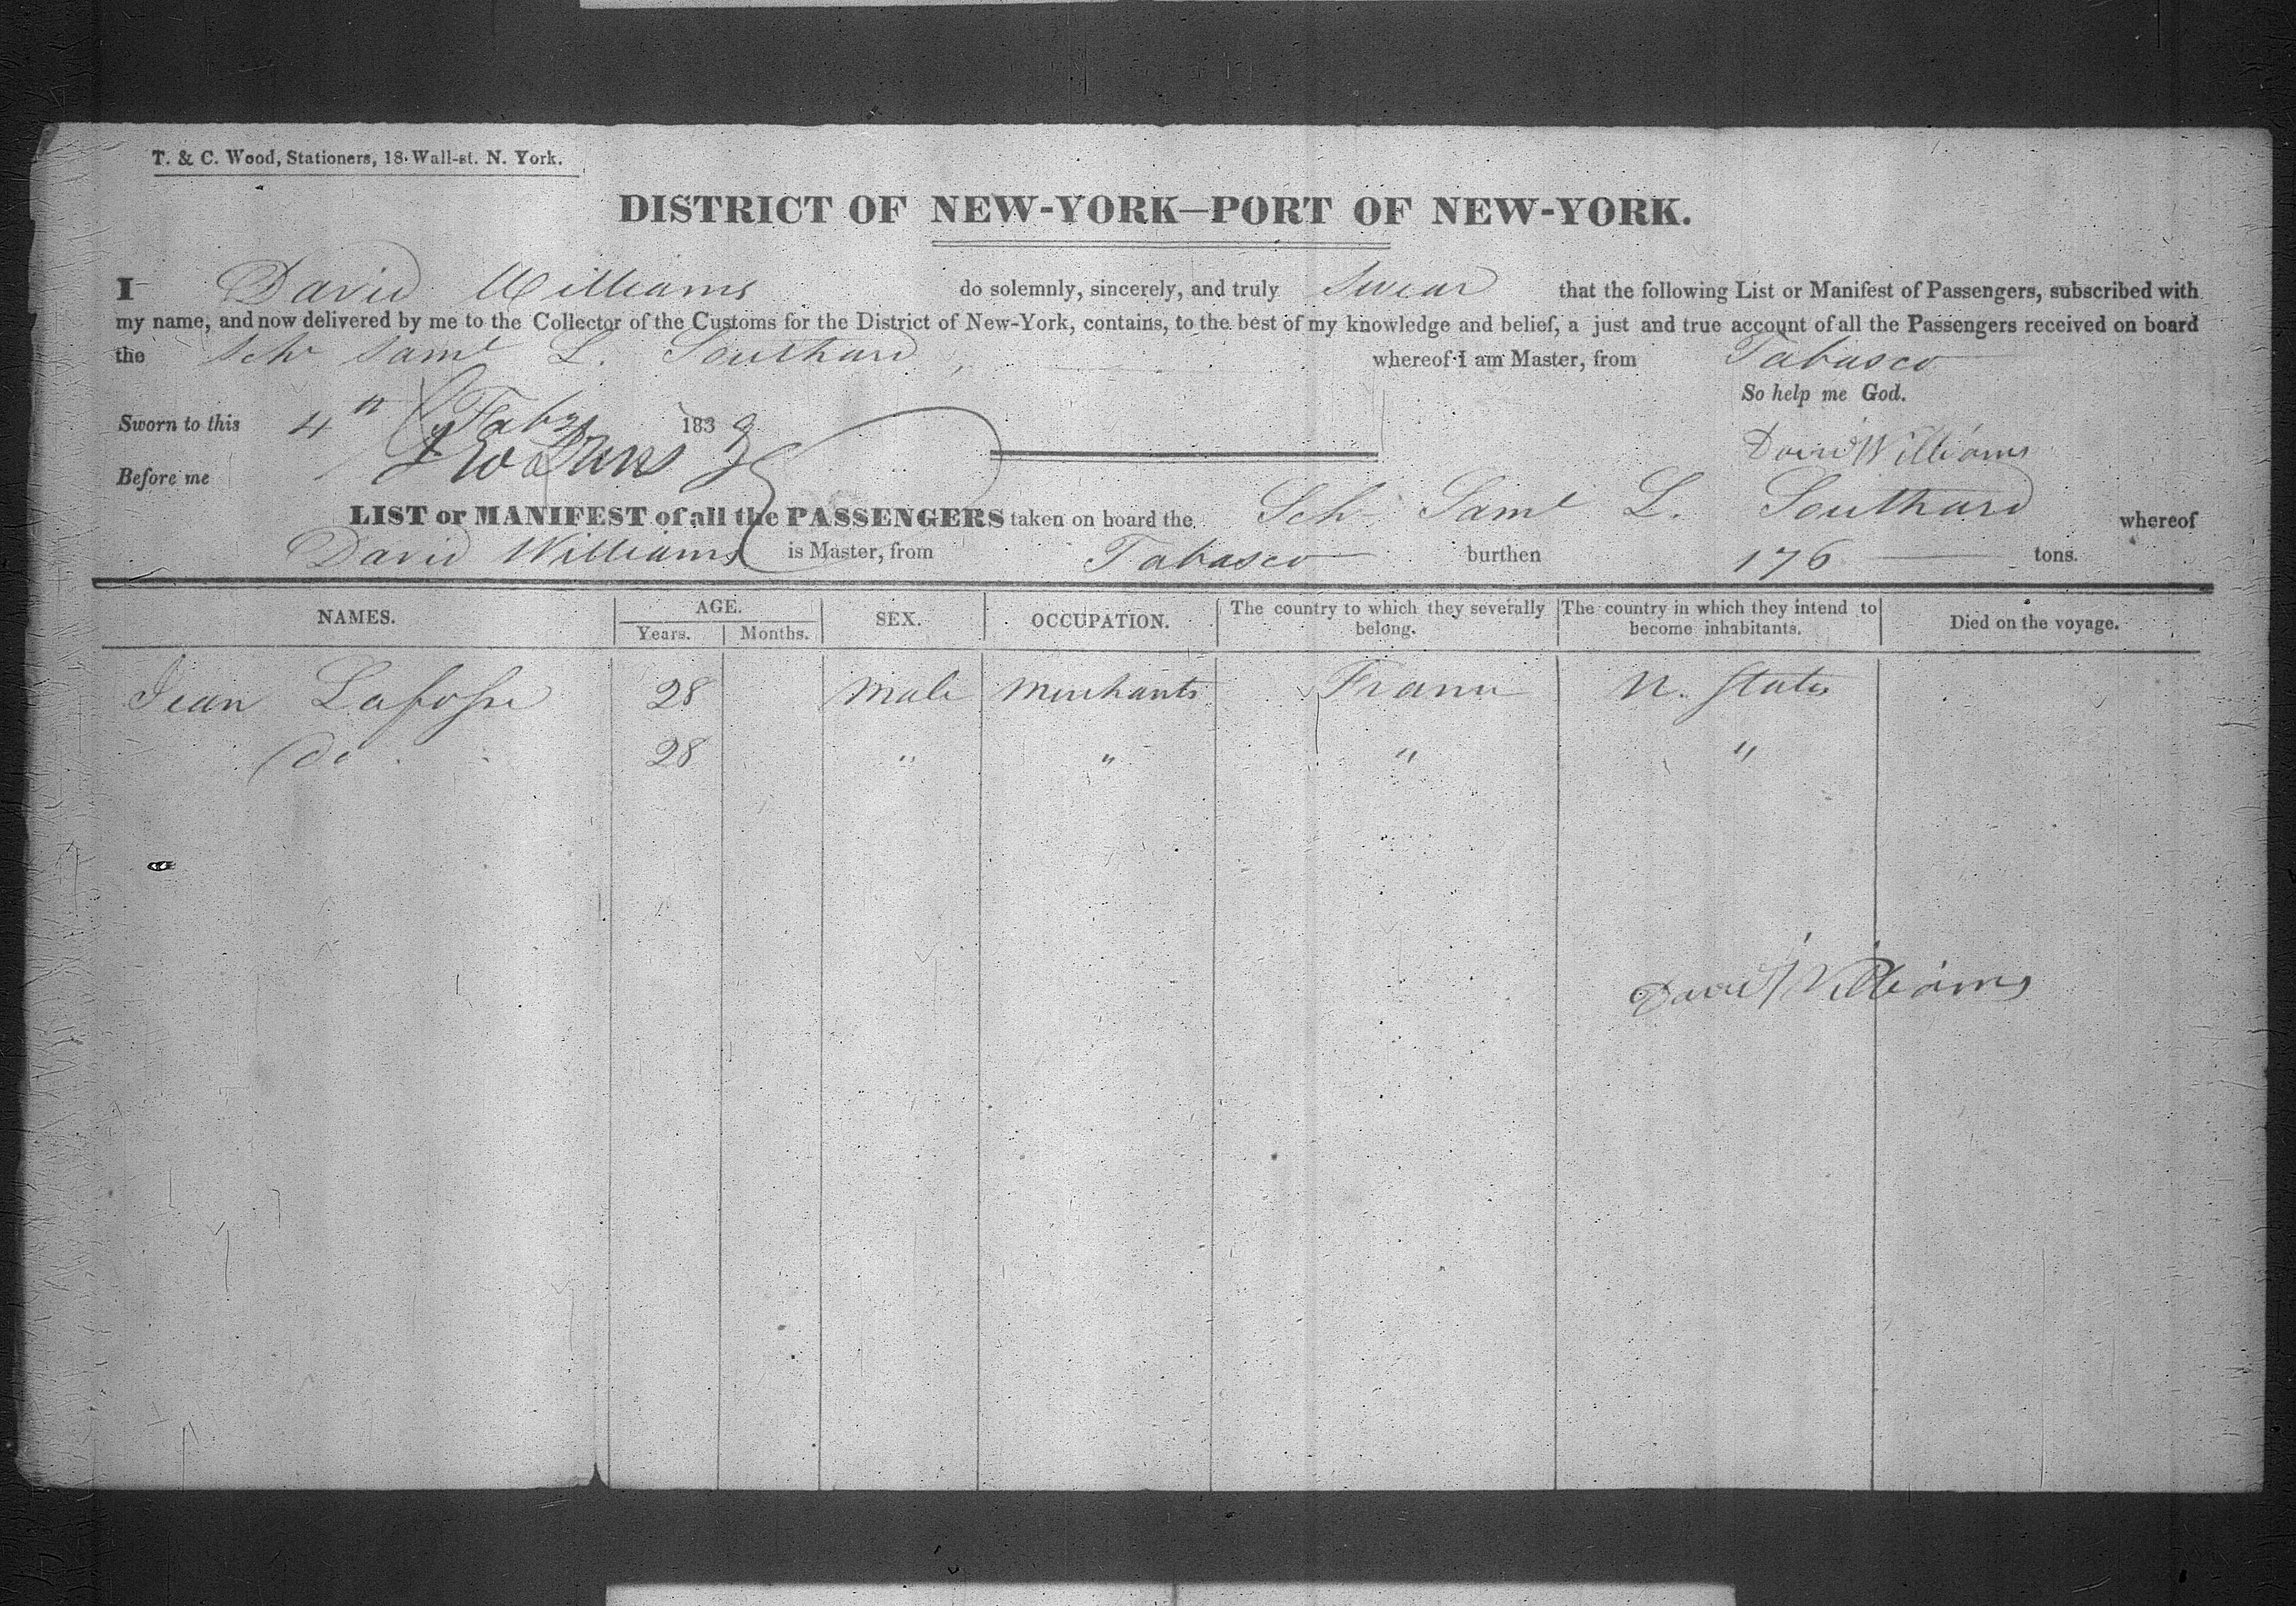 T. & C. Wood, Stationers, 18 Wall-st. N. York.
DISTRICT OF NEW-YORK—PORT OF NEW-YORK.
I David Williams do solemnly, sincerely, and truly Swear that the following List or Manifest of Passengers, subscribed with
my name, and now delivered by me to the Collector of the Customs for the District of New-York, contains, to the best of my knowledge and belief, a just and true account of all the Passengers received on board
the Schr Saml L. Southard whereof I am Master, from Tabasco
So help me God.
Sworn to this 4th Feby 1839
David Williams
Before me
LIST or MANIFEST of all the PASSENGERS taken on board the Sch Saml L. Southard whereof
David Williams is Master, from Tabasco burthen 176 tons.
NAMES. AGE. Years. Months. SEX. OCCUPATION. The country to which they severally belong. The country in which they intend to become inhabitants. Died on the voyage.
Jean Lafosse 28 Male Merchants France U. States
do 28 " " " "
David Williams